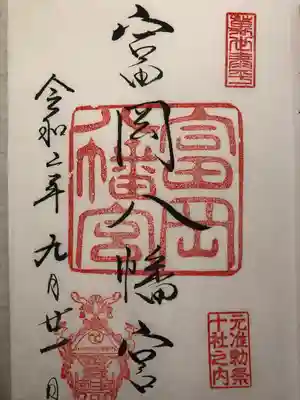 元准勅祭
十社之内
冨岡八幡宮
富岡
八幡宮
令和二年九月廿一日